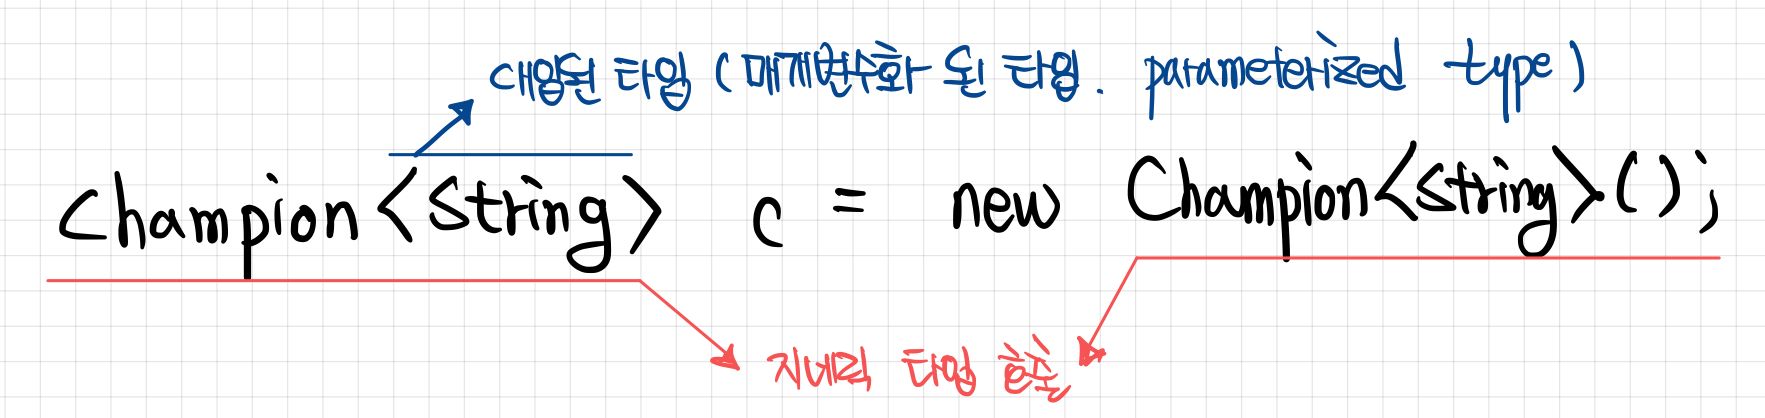 대입된 타입 (매개변수화 된 타입. parameterized type)
Champion<String> c = new Champion<String>();
지네릭 타입 호출